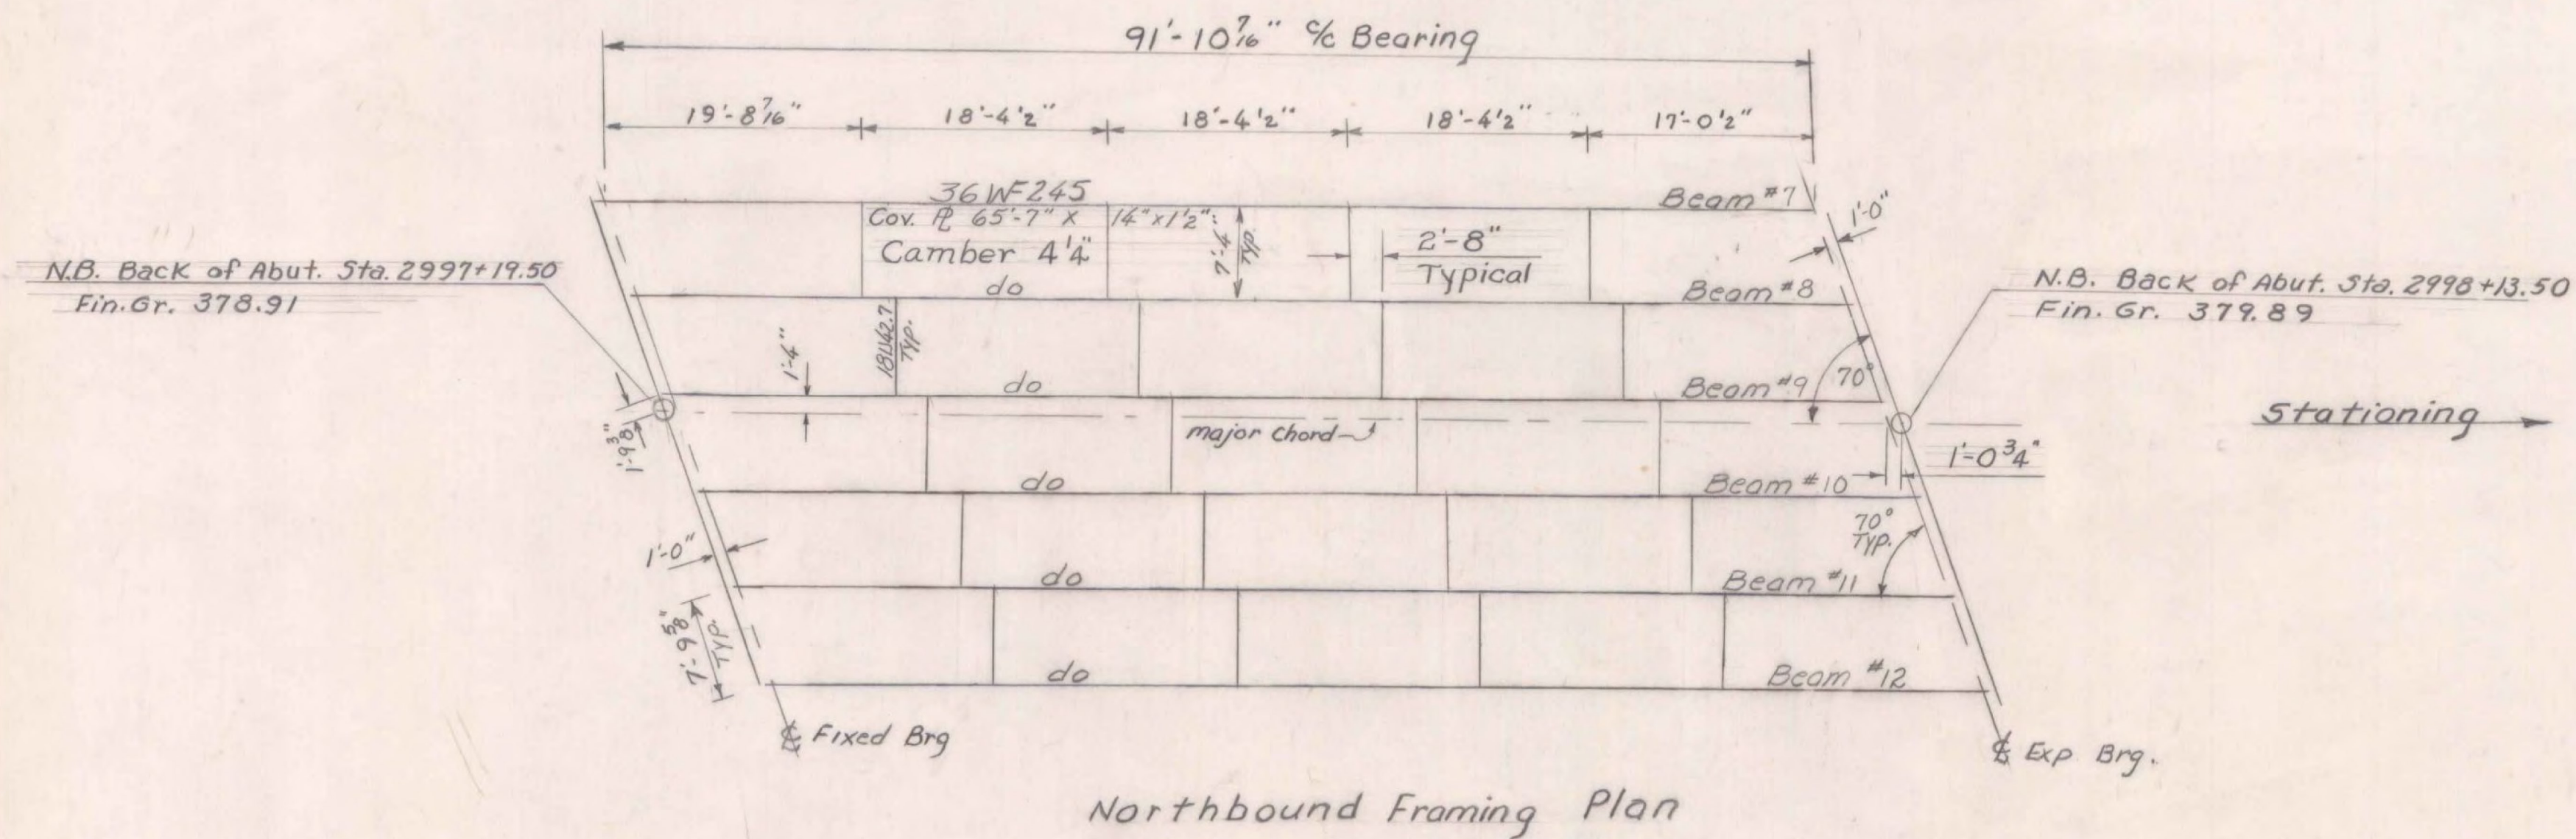 91'-10 7/16" c/c Bearing
19'-8 7/16"
18'-4 1/2"
18'-4 1/2"
18'-4 1/2"
17'-0 1/2"
36 WF 245
Beam #7
Cov. PL 65'-7" x 14" x 1 1/2"
Camber 4 1/4"
7'-4" Typ.
2'-8"
Typical
1'-0"
do
Beam #8
N.B. Back of Abut. Sta. 2997+19.50
Fin. Gr. 378.91
N.B. Back of Abut. Sta. 2998+13.50
Fin. Gr. 379.89
1'-4"
18⊔42.7
Typ.
do
Beam #9
70°
1'-9 3/8"
major Chord
Stationing
1'-0 3/4"
do
Beam #10
1'-0"
70°
Typ.
do
Beam #11
7'-9 5/8"
Typ.
do
Beam #12
℄ Fixed Brg
℄ Exp. Brg.
Northbound Framing Plan